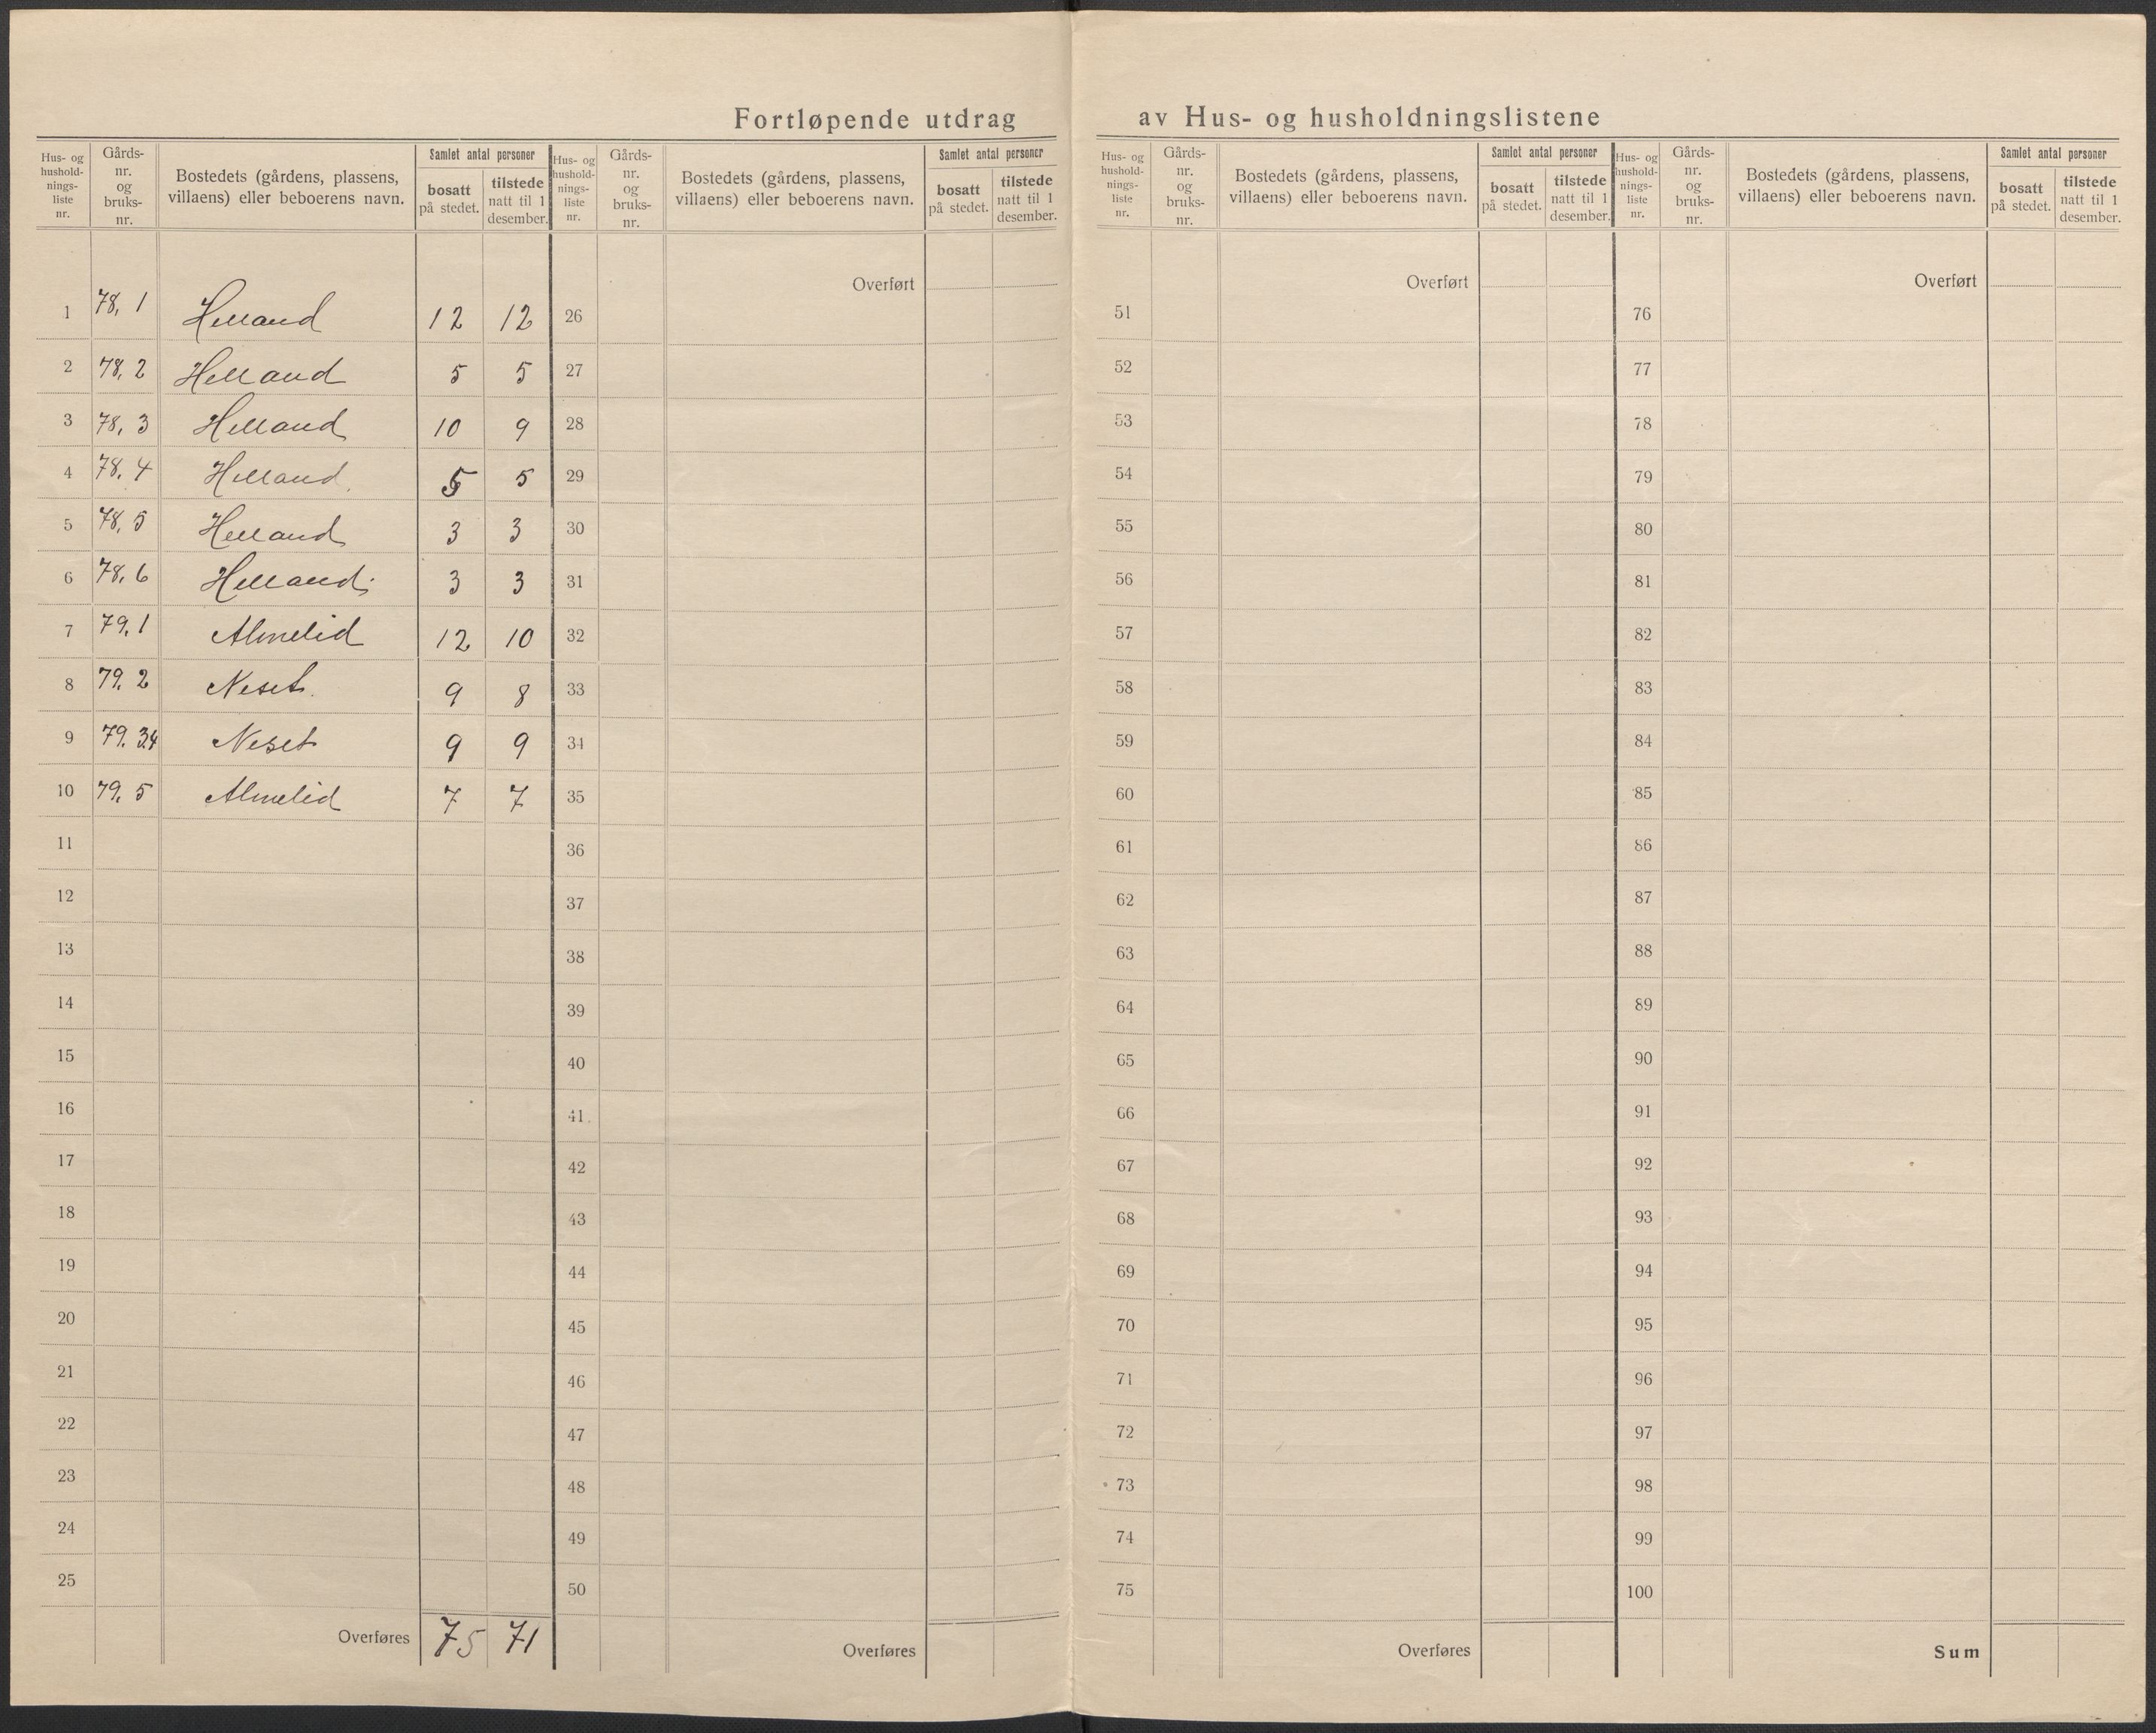 Fortløpende utdrag av Hus- og husholdningslistene
Hus- og hushold- nings- liste nr. Gårds- nr. og bruks- nr. Bostedets (gårdens, plassens, villaens) eller beboerens navn. Samlet antal personer bosatt på stedet. tilstede natt til 1 desember.
Hus- og hushold- nings- liste nr. Gårds- nr. og bruks- nr. Bostedets (gårdens, plassens, villaens) eller beboerens navn. Samlet antal personer bosatt på stedet. tilstede natt til 1 desember.
Hus- og hushold- nings- liste nr. Gårds- nr. og bruks- nr. Bostedets (gårdens, plassens, villaens) eller beboerens navn. Samlet antal personer bosatt på stedet. tilstede natt til 1 desember.
Hus- og hushold- nings- liste nr. Gårds- nr. og bruks- nr. Bostedets (gårdens, plassens, villaens) eller beboerens navn. Samlet antal personer bosatt på stedet. tilstede natt til 1 desember.
Overført Overført Overført
1 78, 1 Helland 12 12 26 51 76
2 78, 2 Helland 5 5 27 52 77
3 78, 3 Helland 10 9 28 53 78
4 78, 4 Helland 5 5 29 54 79
5 78, 5 Helland 3 3 30 55 80
6 78, 6 Helland 3 3 31 56 81
7 79, 1 Almelid 12 10 32 57 82
8 79, 2 Neset. 9 8 33 58 83
9 79, 3,4 Neset 9 9 34 59 84
10 79, 5 Almelid 7 7 35 60 85
11 36 61 86
12 37 62 87
13 38 63 88
14 39 64 89
15 40 65 90
16 41 66 91
17 42 67 92
18 43 68 93
19 44 69 94
20 45 70 95
21 46 71 96
22 47 72 97
23 48 73 98
24 49 74 99
25 50 75 100
Overføres 75 71 Overføres Overføres Sum